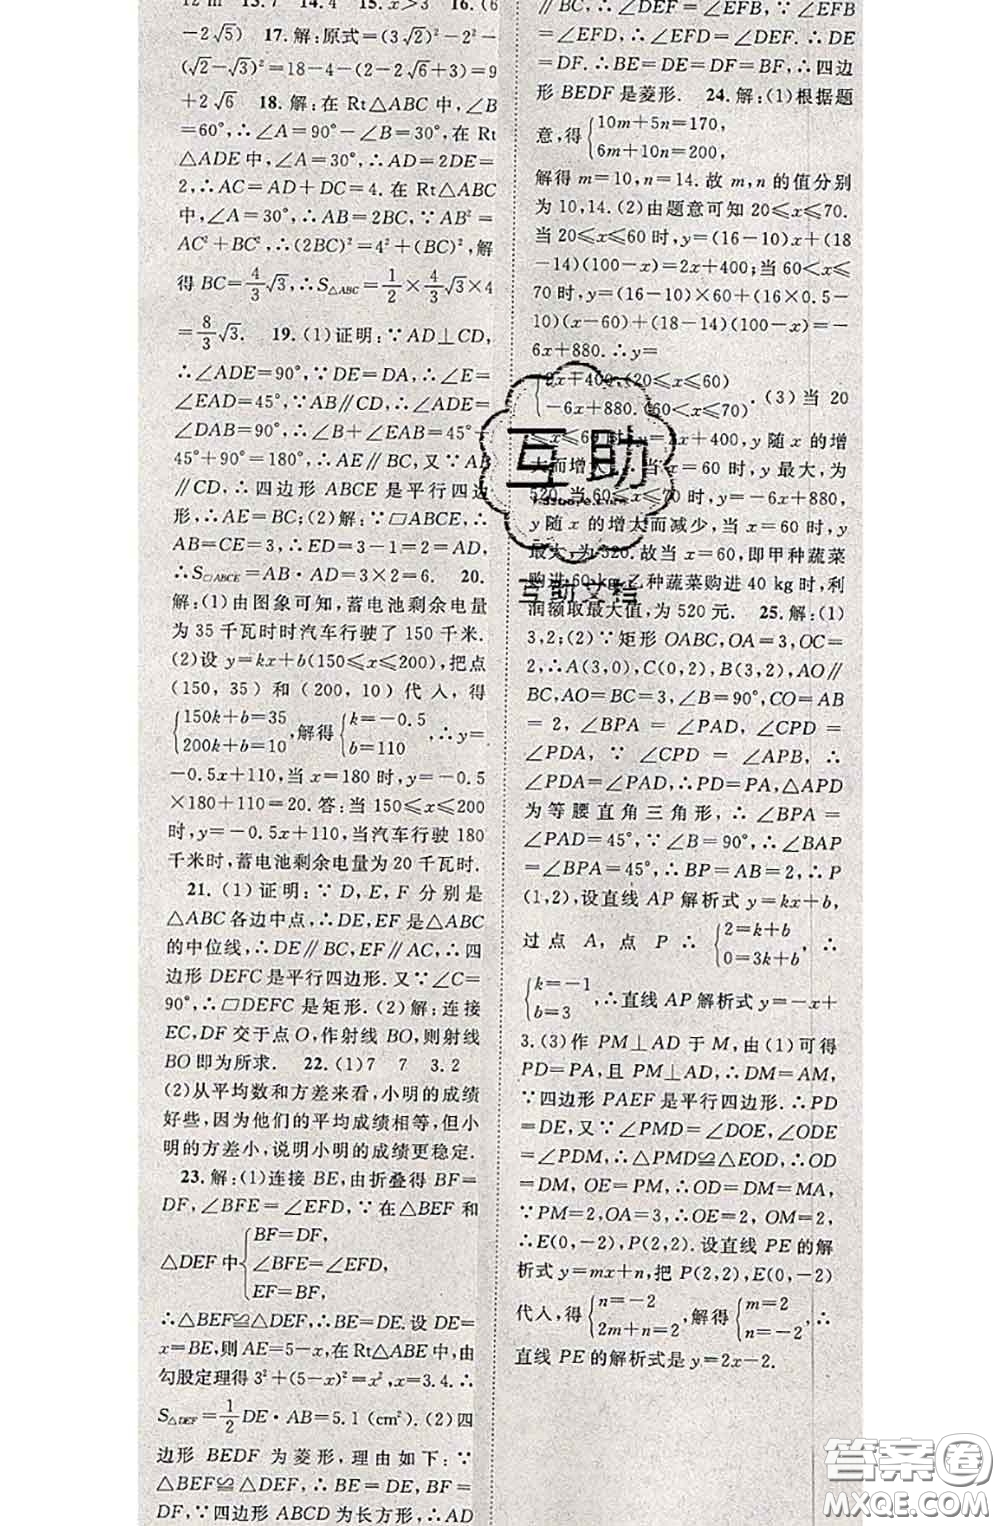 12 m 13.7 14.4 15.x>3 16.(6
-2√5) 17.解:原式=(3√2)²-2²-
(√2-√3)²=18-4-(2-2√6+3)=9
+2√6 18.解:在 Rt△ABC 中,∠B
=60°,∴∠A=90°-∠B=30°,在 Rt
△ADE 中,∠A=30°,∴AD=2DE=
2,∴AC=AD+DC=4.在 Rt△ABC
中,∠A=30°,∴AB=2BC,∵AB²=
AC²+BC²,∴(2BC)²=4²+(BC)²,解
得 BC=4/3√3,∴S△ABC=1/2×4/3√3×4
=8/3√3. 19.(1)证明:∵AD⊥CD,
∴∠ADE=90°,∵DE=DA,∴∠E=
∠EAD=45°,∵AB∥CD,∴∠ADE=
∠DAB=90°,∴∠B+∠EAB=45°+
45°+90°=180°,∴AE∥BC,又∵AB∥
CD,∴四边形 ABCE 是平行四边
形,∴AE=BC;(2)解:∵▱ABCE,∴
AB=CE=3,∴ED=3-1=2=AD,
∴S▱ABCE=AB·AD=3×2=6. 20.
解:(1)由图象可知,蓄电池剩余电量
为 35 千瓦时时汽车行驶了 150 千米.
(2)设 y=kx+b(150≤x≤200),把点
(150,35)和(200,10)代入,得
{150k+b=35 200k+b=10,解得{k=-0.5 b=110,∴y=
-0.5x+110,当 x=180 时,y=-0.5
×180+110=20.答:当 150≤x≤200
时,y=-0.5x+110,当汽车行驶 180
千米时,蓄电池剩余电量为 20 千瓦时.
21.(1)证明:∵D,E,F 分别是
△ABC 各边中点,∴DE,EF 是△ABC
的中位线,∴DE∥BC,EF∥AC,∴四
边形 DEFC 是平行四边形.又∵∠C=
90°,∴▱DEFC 是矩形.(2)解:连接
EC,DF 交于点 O,作射线 BO,则射线
BO 即为所求. 22.(1)7 7 3.2
(2)从平均数和方差来看,小明的成绩
好些,因为他们的平均成绩相等,但小
明的方差小,说明小明的成绩更稳定.
23.解:(1)连接 BE,由折叠得 BF=
DF,∠BFE=∠EFD,∵在△BEF 和
△DEF 中{BF=DF, ∠BFE=∠EFD, EF=BF,
∴△BEF≌△DEF,∴BE=DE.设 DE=
x=BE,则 AE=5-x,在 Rt△ABE 中,由
勾股定理得 3²+(5-x)²=x²,x=3.4.∴
S△DEF=1/2DE·AB=5.1(cm²).(2)四
边形 BEDF 为菱形,理由如下:∵
△BEF≌△DEF,∴BE=DE,BF=
DF,∵四边形 ABCD 为长方形,∴AD
∥BC,∴∠DEF=∠EFB,∵∠EFB=
∠EFD,∴∠EFD=∠DEF.∴DE=
DF.∴BE=DE=DF=BF,∴四边
形 BEDF 是菱形. 24.解:(1)根据题
意,得{10m+5n=170, 6m+10n=200,
解得 m=10,n=14.故 m,n 的值分别
为 10,14.(2)由题意可知 20≤x≤70.
当 20≤x≤60 时,y=(16-10)x+(18
-14)(100-x)=2x+400;当 60<x≤
70 时,y=(16-10)×60+(16×0.5-
10)(x-60)+(18-14)(100-x)=-
6x+880.∴y=
{2x+400,(20≤x≤60) -6x+880.(60<x≤70).(3)当 20
≤x≤60 时,y=2x+400,y 随 x 的增
大而增大,当 x=60 时,y 最大,为
520.当 60≤x≤70 时,y=-6x+880,
y 随 x 的增大而减少,当 x=60 时,y
最大,为 520.故当 x=60,即甲种蔬菜
购进 60 kg,乙种蔬菜购进 40 kg 时,利
润额取最大值,为 520 元. 25.解:(1)
3,2;(2)∵矩形 OABC,OA=3,OC=
2,∴A(3,0),C(0,2),B(3,2),AO∥
BC,AO=BC=3,∠B=90°,CO=AB
=2,∠BPA=∠PAD,∠CPD=
∠PDA,∵∠CPD=∠APB,∴
∠PDA=∠PAD,∴PD=PA,△APD
为等腰直角三角形,∴∠BPA=
∠PAD=45°,∵∠B=90°,∴∠BAP
=∠BPA=45°,∴BP=BA=2,∴P
(1,2),设直线 AP 解析式 y=kx+b,
过点 A,点 P∴{2=k+b 0=3k+b,∴
{k=-1 b=3,∴直线 AP 解析式 y=-x+
3.(3)作 PM⊥AD 于 M,由(1)可得
PD=PA,且 PM⊥AD,∴DM=AM,
∵四边形 PAEF 是平行四边形.∴PD
=DE,又∵∠PMD=∠DOE,∠ODE
=∠PDM,∴△PMD≌△EOD,∴OD
=DM,OE=PM,∴OD=DM=MA,
∵PM=2,OA=3,∴OE=2,OM=2,
∴E(0,-2),P(2,2).设直线 PE 的解
析式 y=mx+n,把 P(2,2),E(0,-2)
代入,得{n=-2 2m+n=2,解得{m=2 n=-2,∴
直线 PE 的解析式是 y=2x-2.
互助
互助文档
答案圈
MXQE.COM